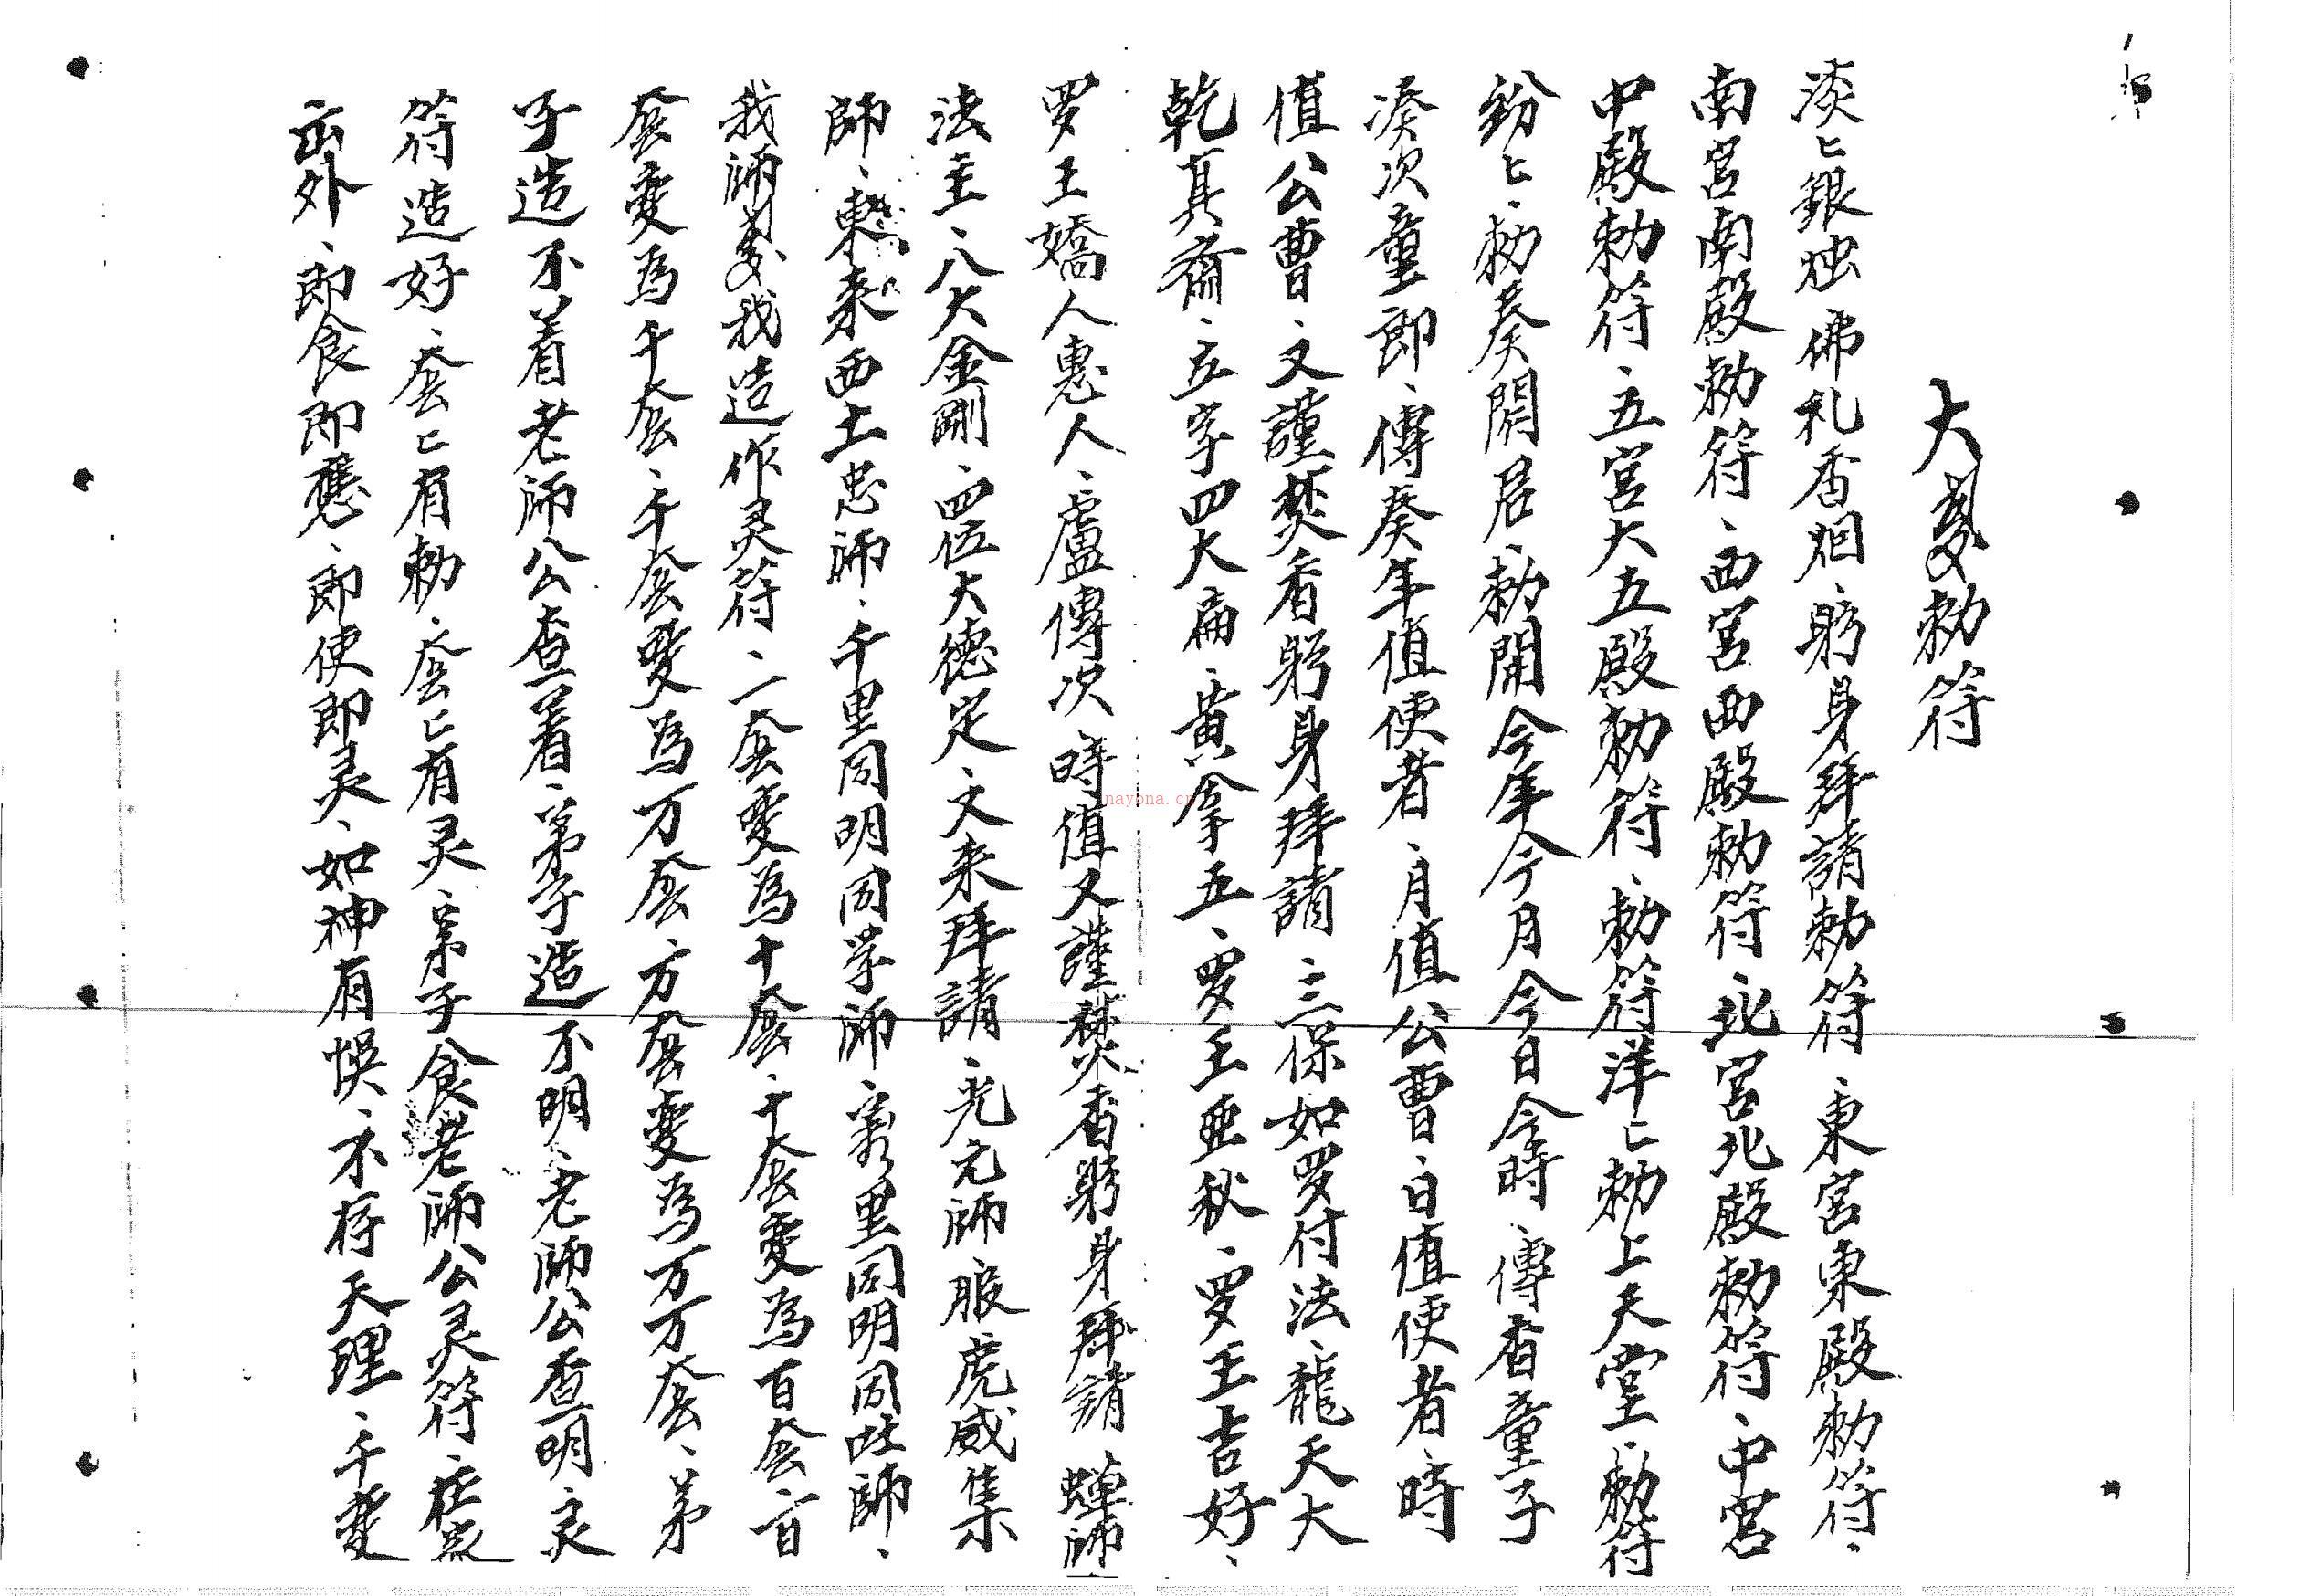 大變勅符
淡〻銀烛、佛礼香烟、躬身拜請勅符、東宮東殿勅符、
南宮南殿勅符、西宮西殿勅符、北宮北殿勅符、中宮
中殿勅符、五宮大五殿勅符、勅符洋〻勅上天堂、勅符
紛〻、勅奏開君、勅開今年今月今日今時、傳香童子
凑次童郎、傳奏年值使者、月值公曹、日值使者、時
值公曹、又謹焚香躬身拜請、三保如罗付法、龍天大
乾其齋、立字四大扁、黄拿五、罗王亜秋、罗王吉好、
罗王嬌人惠人、盧傳次時值又謹焚香躬身拜請蟬師
法主、八大金剛、四位大德定、文来拜請、光元師服虎威集
師、東来西土忠師、千里同明同学師、里同明同故師、
我師変我造作灵符、一套变為十套、十套变為百套、百
套变為千套、千套变為万套、万套变為万万套、弟
子造不着老師公查着、弟子造不明、老師公查明、灵
符造好、套〻有勅、套〻有灵、弟子食老師公灵符、在
出外、即食即應、即使即灵、如神有悞、不存天理、千变
nayona.cn